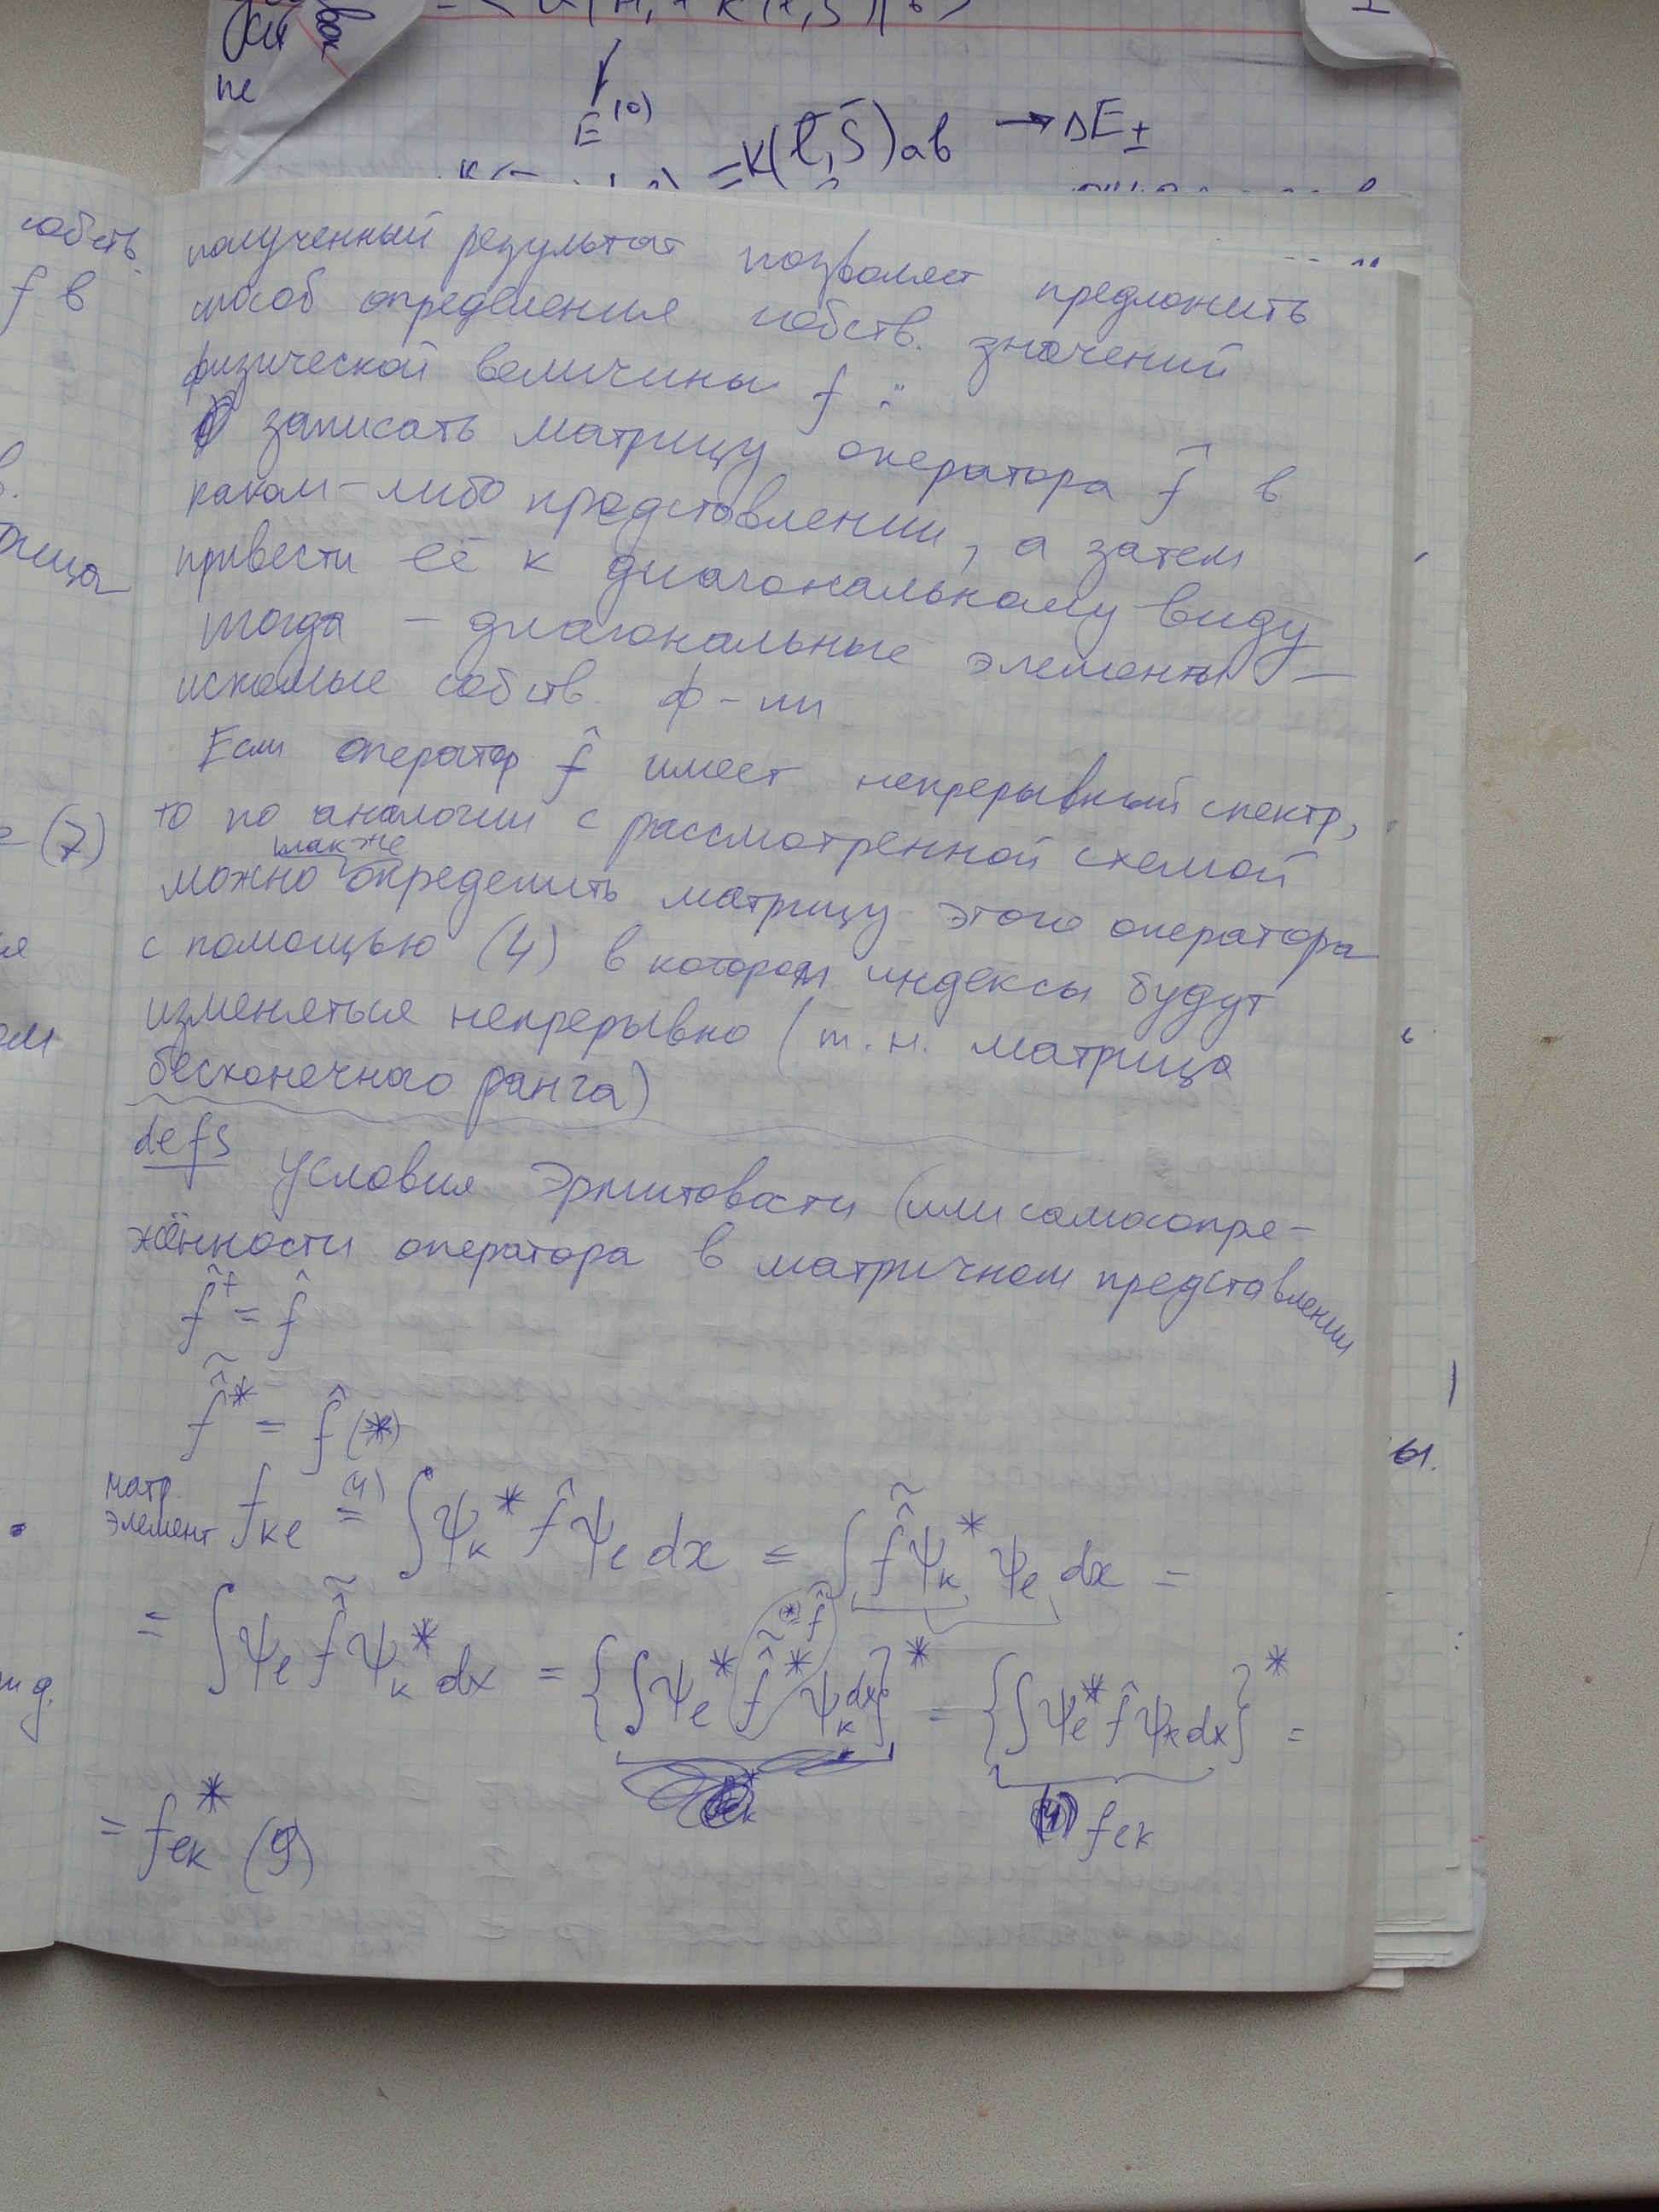 не
E⁽⁰⁾
= K(l̄, S̄)ab → ΔE±
полученный результат позволяет предложить
способ определения собств. значений
физической величины f :
записать матрицу оператора f̂ в
каком-либо представлении, а затем
привести её к диагональному виду
тогда – диагональные элементы –
искомые собств. ф-ии
Если оператор f̂ имеет непрерывный спектр,
то по аналогии с рассмотренной схемой
также
можно определить матрицу этого оператора
с помощью (4) в котором индексы будут
изменяться непрерывно (т.н. матрица
бесконечного ранга)
def5 Условия Эрмитовости (или самосопря-
жённости оператора в матричном представлении
f̂⁺ = f̂
f̂̃* = f̂ (*)
матр. элемент f_kl =⁽⁴⁾ ∫ψ_k* f̂ ψ_l dx = ∫ f̂̃ ψ_k* ψ_l dx =
= ∫ψ_l f̂̃ ψ_k* dx = {∫ψ_l* f̂̃* ψ_k dx}* = {∫ψ_l* f̂ ψ_k dx}* =
(*) = f̂
(4) f_lk
= f_lk* (9)
собств.
f в
= (7)